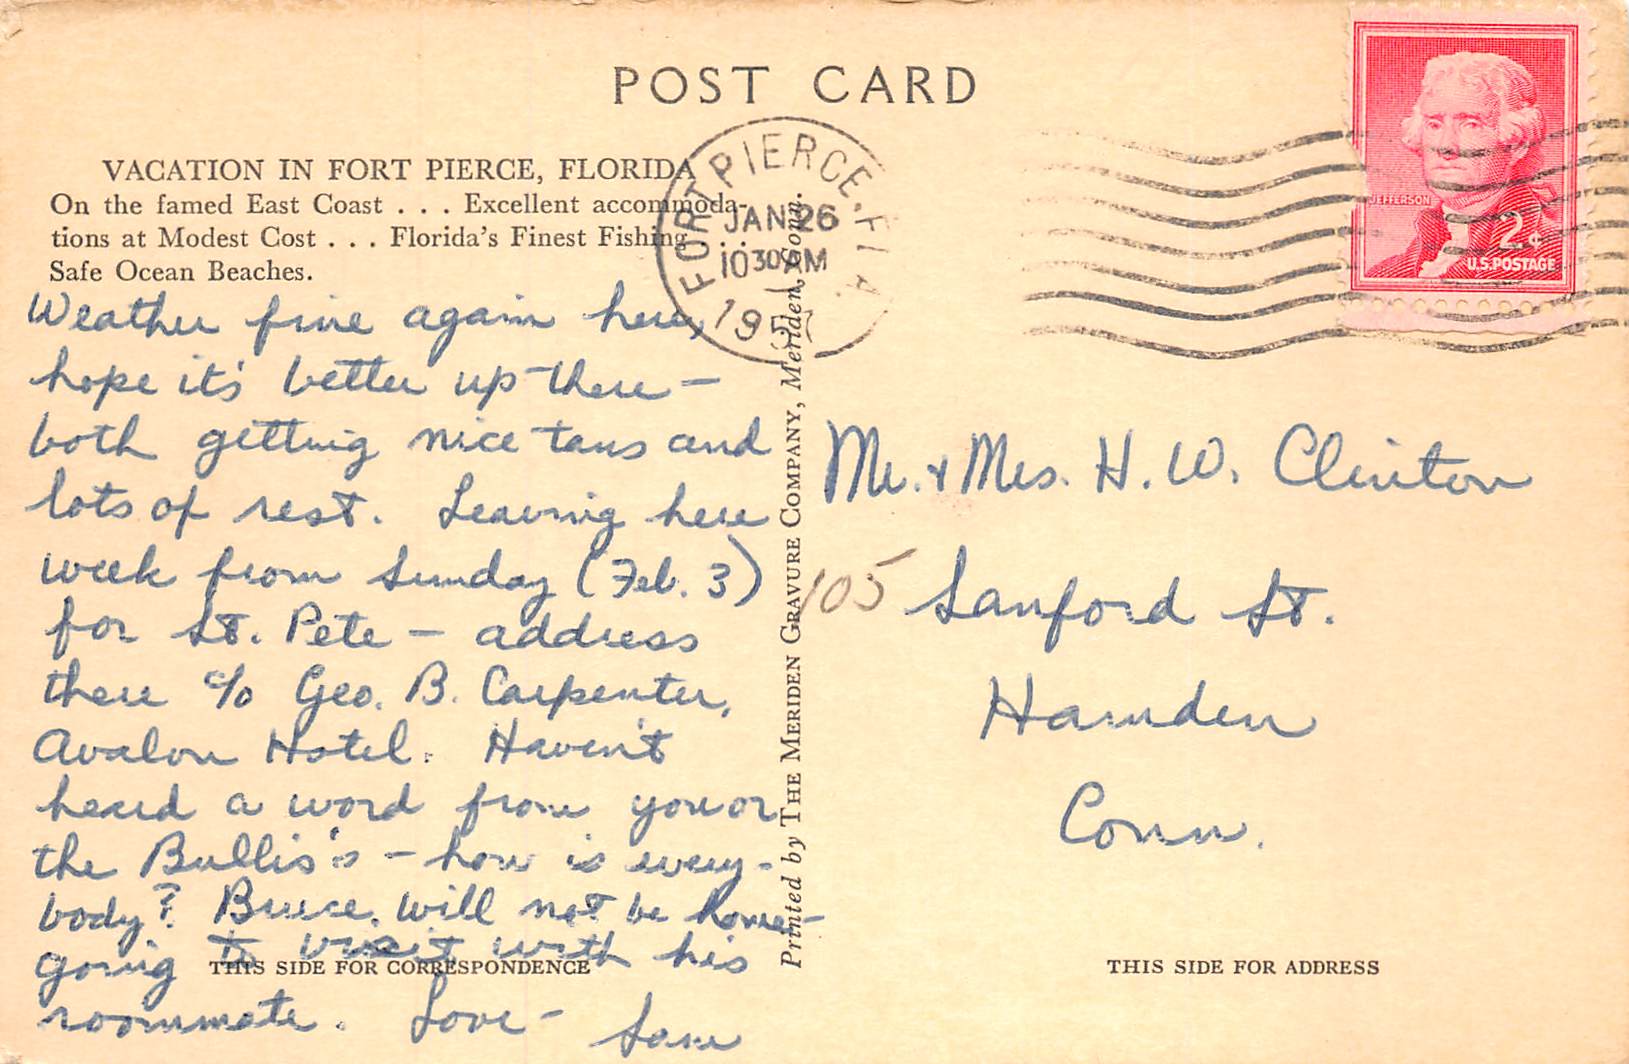 POST CARD
VACATION IN FORT PIERCE, FLORIDA
On the famed East Coast . . . Excellent accommoda-
tions at Modest Cost . . . Florida's Finest Fishing . . .
Safe Ocean Beaches.
FORT PIERCE, FLA.
JAN 26
10 30 AM
195
JEFFERSON
2¢
U.S. POSTAGE
Weather fine again here,
hope it's better up there —
both getting nice tans and
lots of rest. Leaving here
week from Sunday (Feb. 3)
for St. Pete — address
there c/o Geo. B. Carpenter,
Avalon Hotel. Haven't
heard a word from you or
the Bullis's — how is every-
body? Bruce will not be home —
going to visit with his
roommate. Love —
THIS SIDE FOR CORRESPONDENCE
Printed by THE MERIDEN GRAVURE COMPANY, Meriden, Conn.
Mr. & Mrs. H. W. Clinton
105 Sanford St.
Hamden
Conn.
THIS SIDE FOR ADDRESS